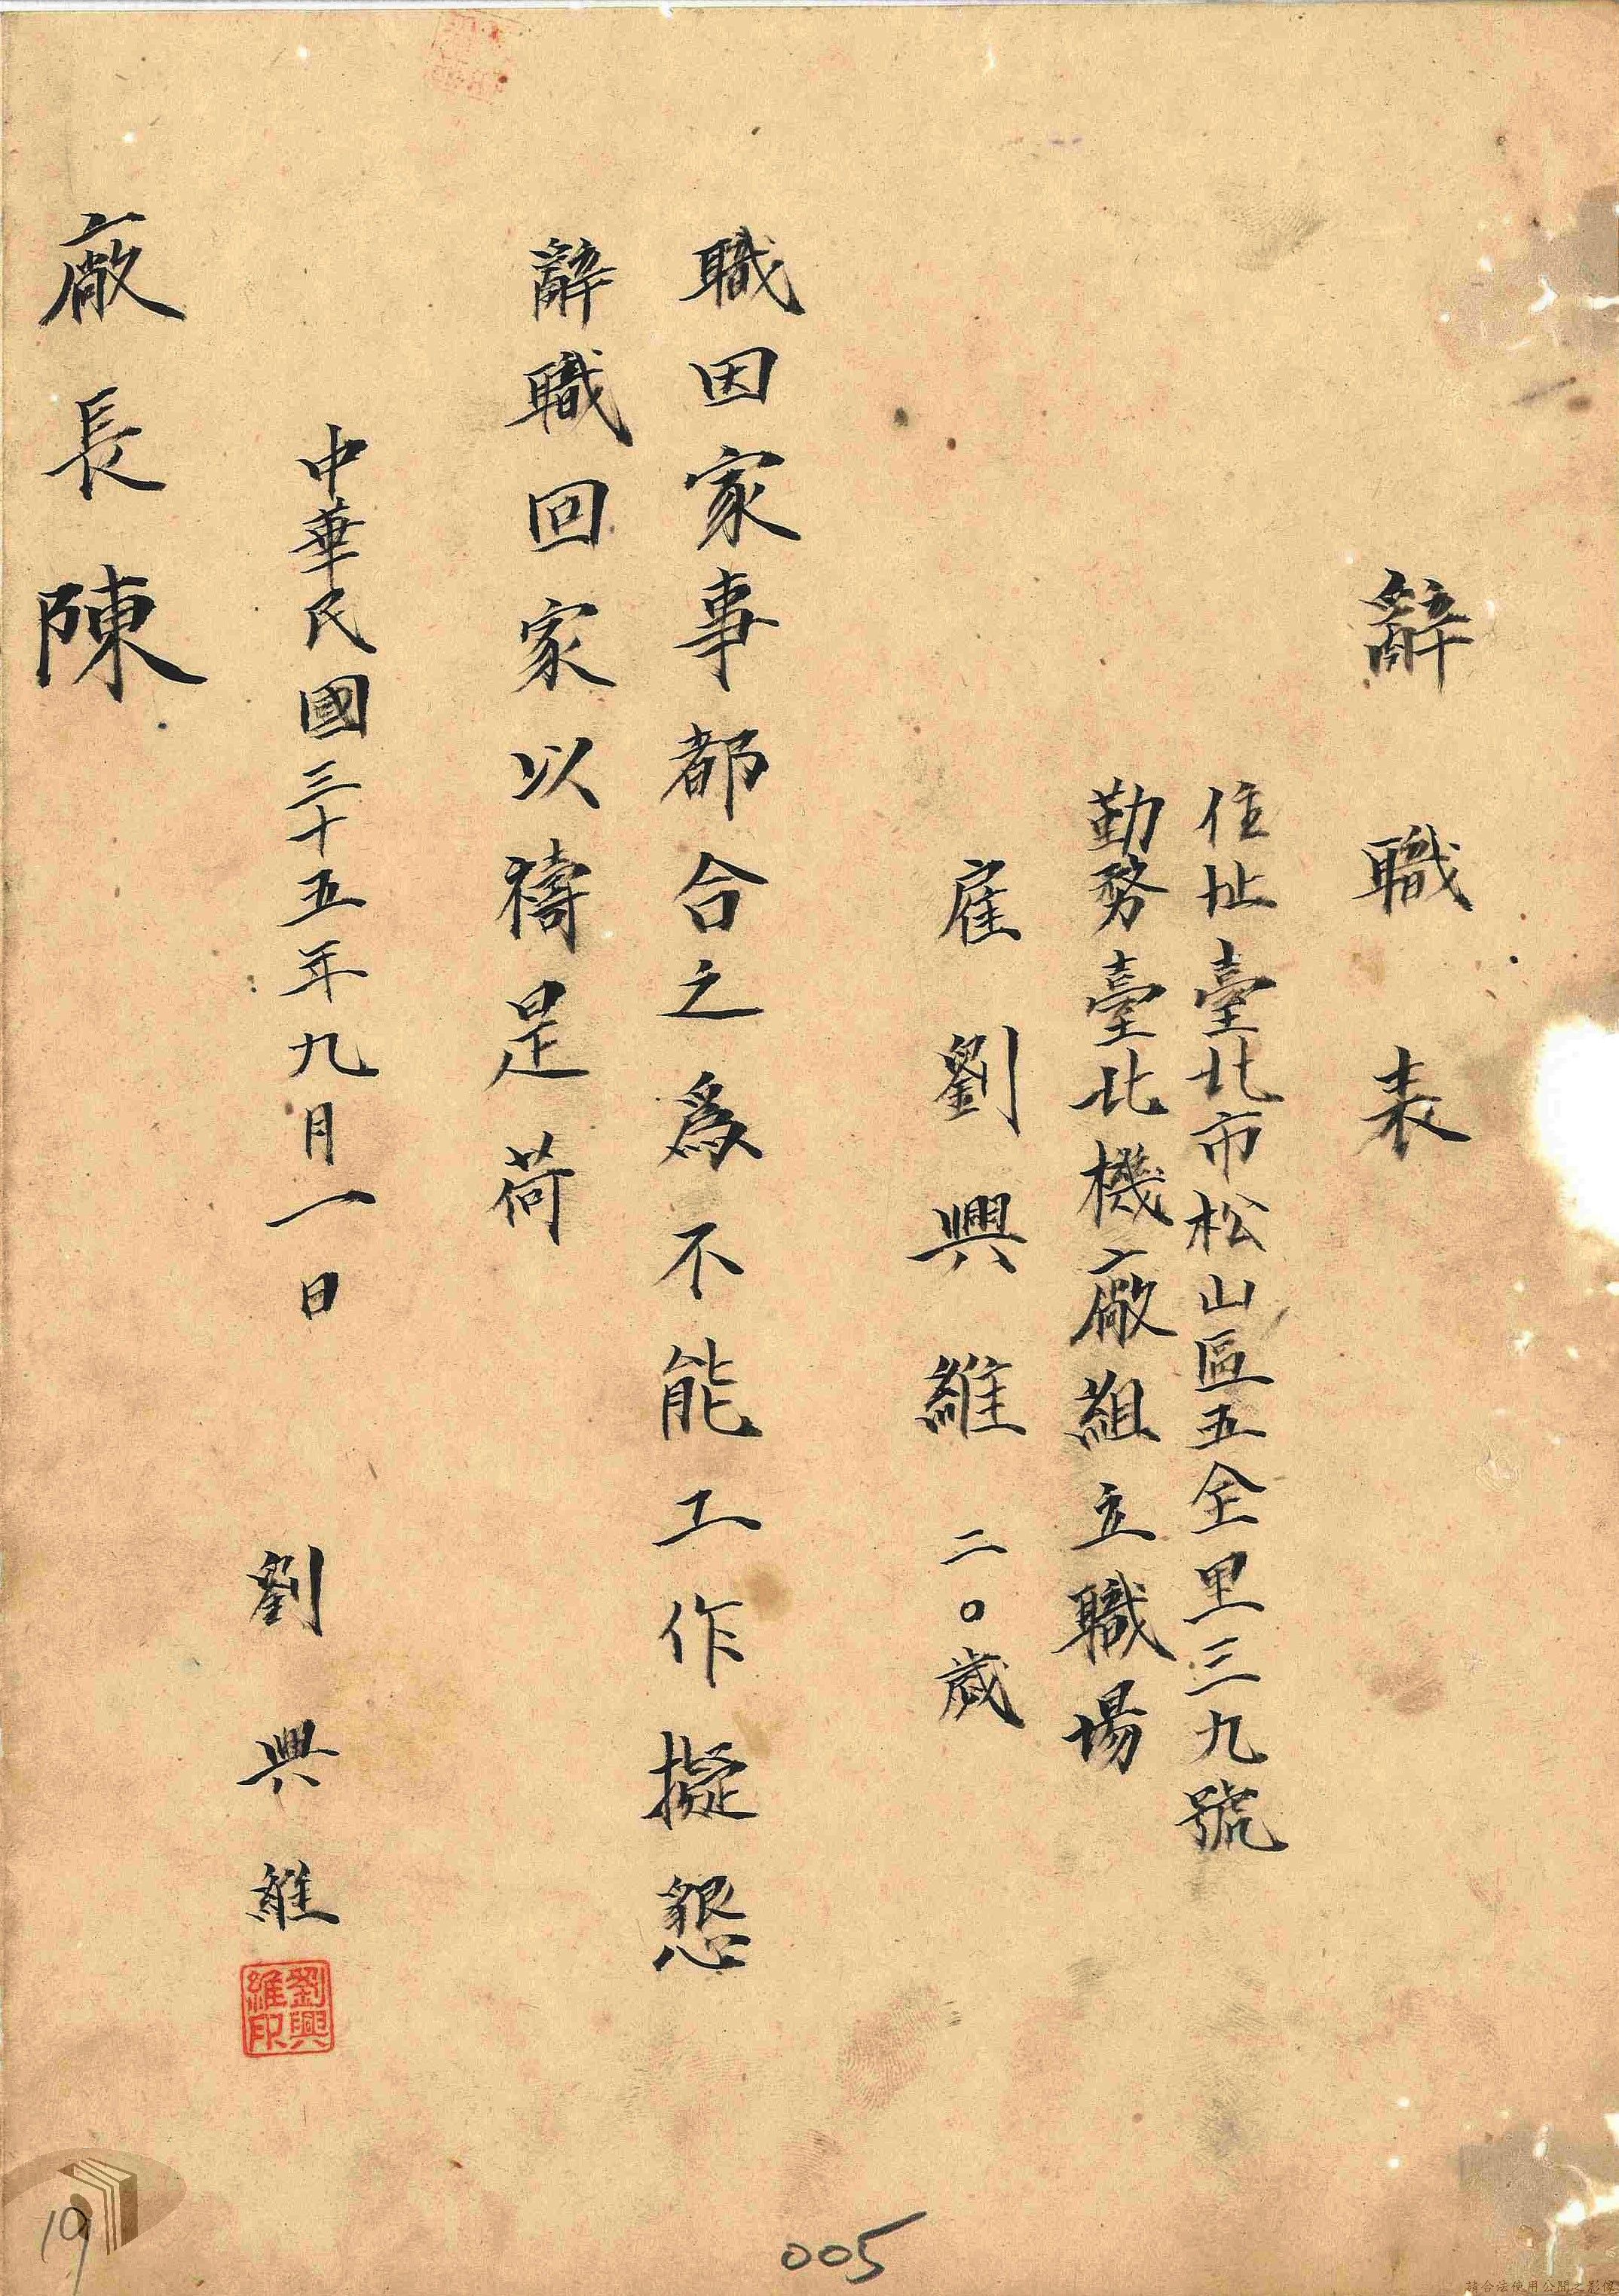 辭職表
住址臺北市松山區五全里三九號
勤務臺北機廠組立職場
雇劉興維 二〇歲
職因家事都合之爲不能工作擬懇
辭職回家以禱是荷
中華民國三十五年九月一日
劉興維
劉興維印
廠長陳
19
005
請合法使用公開之影像